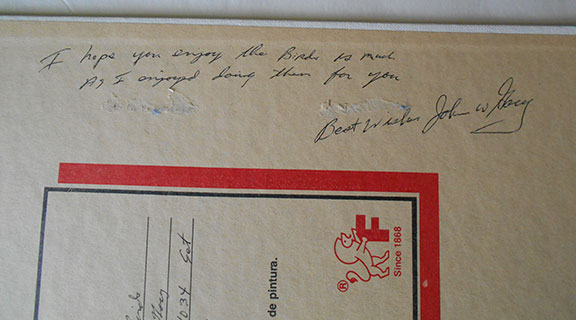 I hope you enjoy the Birds as much
As I enjoyed doing them for you
Best Wishes John W
de pintura.
1034
F
Since 1868
®